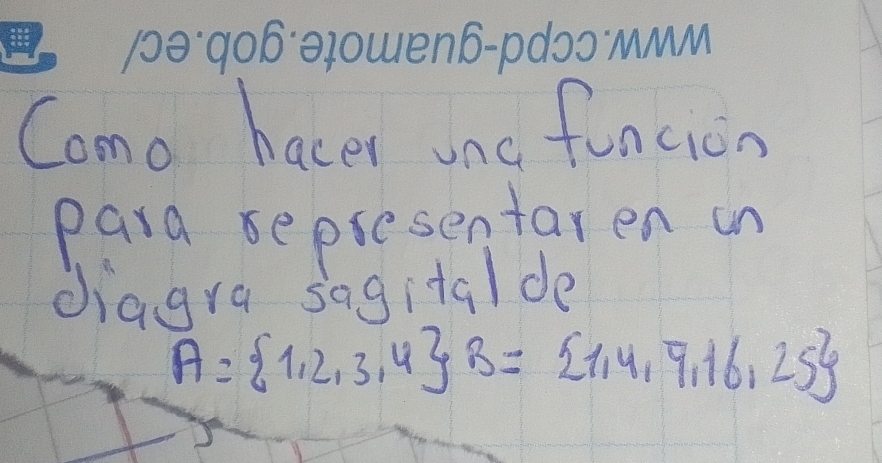 www.ccpd-guamote.gob.ec/
Como hacer una función
para representar en un
diagra sagital de
A = {1,2,3,4} B = {1,4,9,16,25}